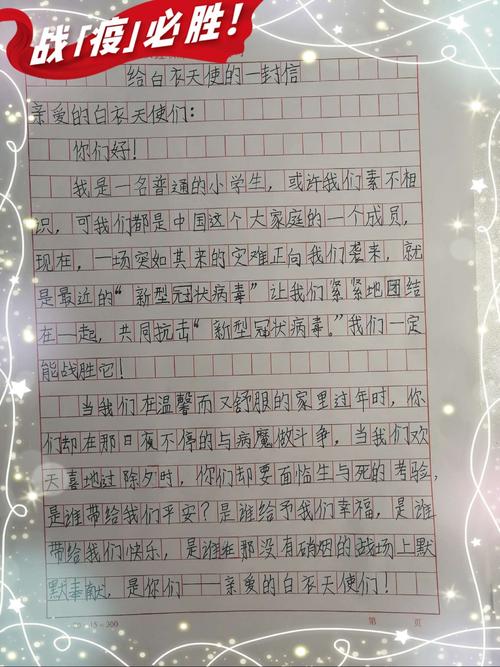 战「疫」必胜!
给白衣天使的一封信
亲爱的白衣天使们:
你们好!
我是一名普通的小学生,或许我们素不相
识,可我们都是中国这个大家庭的一个成员,
现在,一场突如其来的灾难正向我们袭来,就
是最近的“新型冠状病毒”让我们紧紧地团结
在一起,共同抗击“新型冠状病毒。”我们一定
能战胜它!
当我们在温馨而又舒服的家里过年时,你
们却在那日夜不停的与病魔做斗争,当我们欢
天喜地过除夕时,你们却要面临生与死的考验,
是谁带给我们平安?是谁给予我们幸福,是谁
带给我们快乐,是谁在那没有硝烟的战场上默
默奉献,是你们——亲爱的白衣天使们!
15=300
第 页